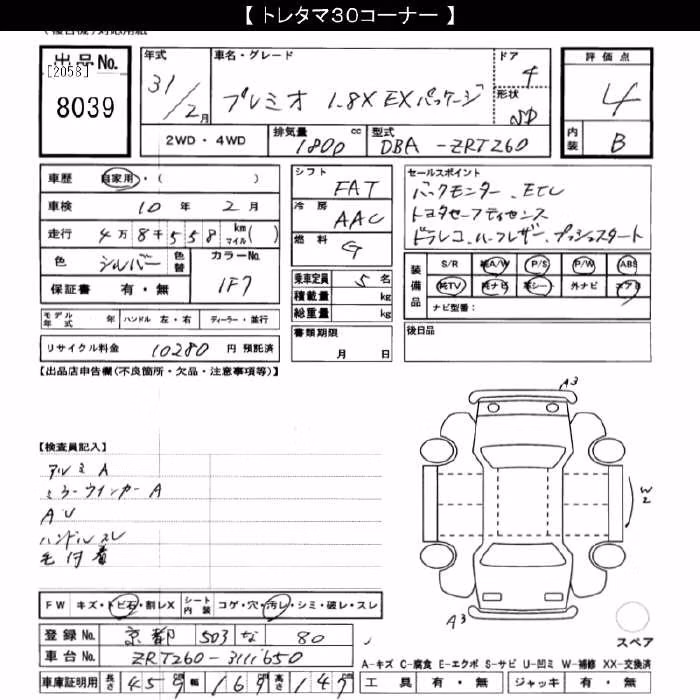 【 トレタマ30コーナー 】
出品No. [2058] 8039
年式 31/2月
車名・グレード プレミオ 1.8X EXパッケージ
ドア 4
形状 SD
評価点 4
内装 B
2WD・4WD 排気量 1800 cc 型式 DBA-ZRT260
車歴 自家用・( )
車検 10年 2月
走行 4万8千558 km マイル( )
色 シルバー 色替 カラーNo. 1F7
保証書 有・無
シフト FAT
冷房 AAC
燃料 G
乗車定員 5名
積載量 kg
総重量 kg
書類期限 月 日
セールスポイント
バックモニター、ETC
トヨタセーフティセンス
ドラレコ、ハーフレザー、プッシュスタート
装備品 S/R 純A/W P/S P/W ABS
純TV 純ナビ 革シート 外ナビ エアB
ナビ型番:
後日品
モデル年式 年 ハンドル 左・右 ディーラー・並行
リサイクル料金 10280 円 預託済
【出品店申告欄(不良箇所・欠品・注意事項等)】
【検査員記入】
アルミA
ミラーウインカーA
AU
ハンドルスレ
毛付着
A3
W2
A3
スペア
FW キズ・トビ石・割レX シート内装 コゲ・穴・汚レ・シミ・破レ・スレ
登録No. 京都 503 な 80
車台No. ZRT260-3111650
A-キズ C-腐食 E-エクボ S-サビ U-凹ミ W-補修 XX-交換済
車庫証明用 長さ 459cm 幅 169cm 高さ 147cm
工具 有・無 ジャッキ 有・無